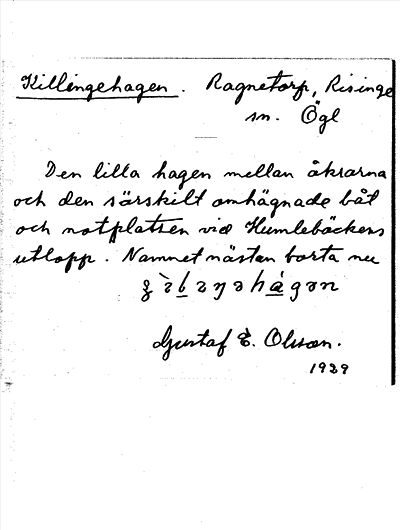 Killingehagen. Ragnetorp, Risinge
sn. Ögl
Den lilla hagen mellan åkrarna
och den särskilt omhägnade båt
och notplatsen vid Humlebäckens
utlopp. Namnet nästan borta nu
Gustaf E. Olsson.
1929